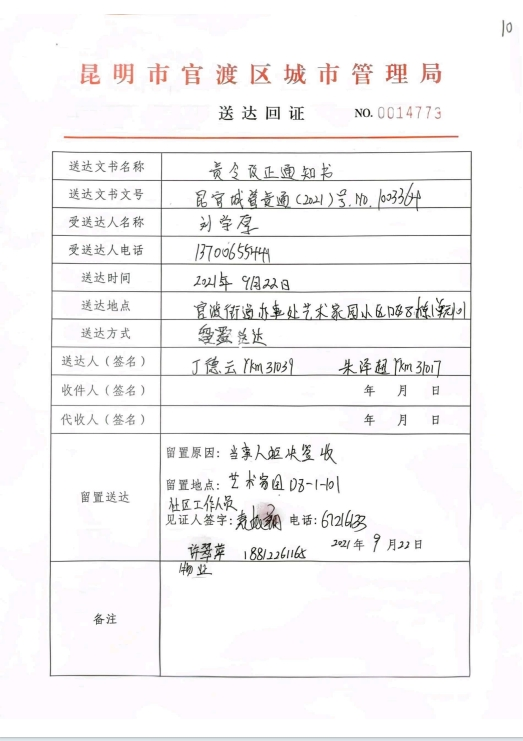 10
昆明市官渡区城市管理局
送达回证 NO. 0014773
送达文书名称 责令改正通知书
送达文书文号 昆官城管责通(2021)号.NO.
受送达人名称 刘学厚
受送达人电话 13700655444
送达时间 2021年9月22日
送达地点 官渡街道办事处艺术家园小区D区8栋1单元101
送达方式 留置送达
送达人(签名) 丁德云 Ykm 31039 朱泽超 Ykm 31017
收件人(签名) 年 月 日
代收人(签名) 年 月 日
留置送达
留置原因:当事人拒绝签收
留置地点:艺术家园 D8-1-101
社区工作人员
见证人签字: 电话:67216133
许翠萍 18812261165 2021年9月22日
物业
备注